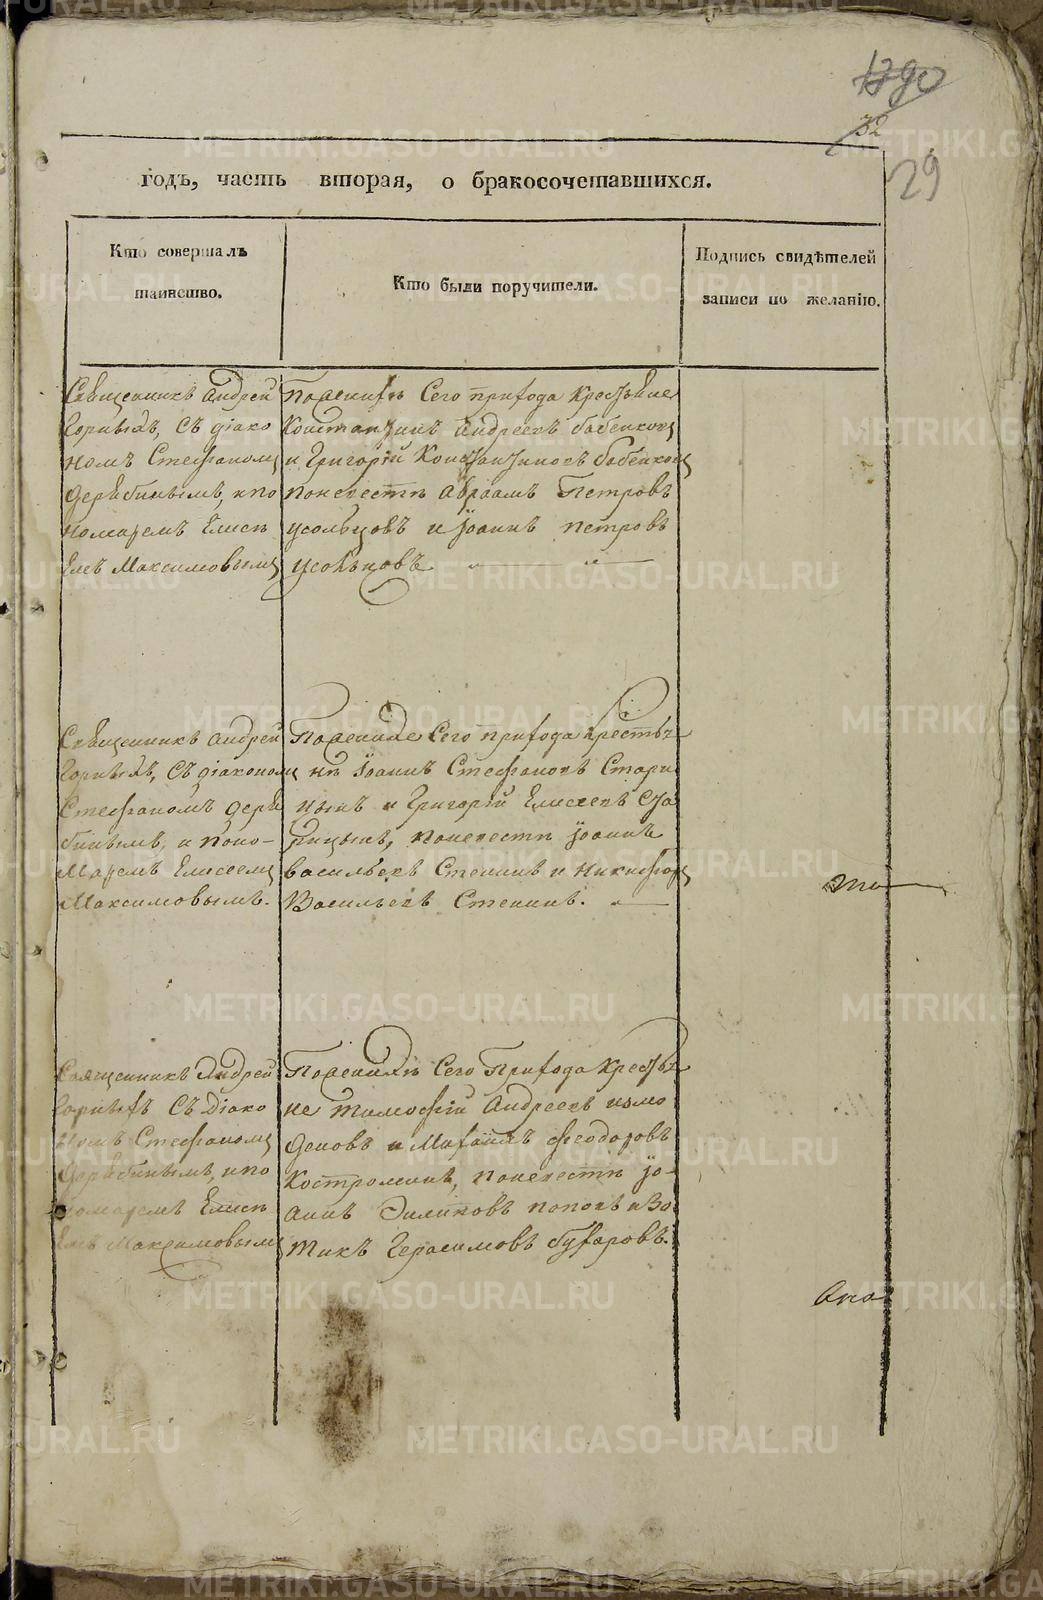 1790
32
29
годъ, часть вторая, о бракосочетавшихся.
Кто совершалъ
таинство.
Кто были поручители.
Подпись свидѣтелей
записи по желанію.
Священникъ Андрей
Горныхъ, съ діако
номъ Стефаномъ
Дерябинымъ, и по
номаремъ Елисѣ
емъ Максимовымъ
По женихѣ Сего прихода Крестьяне
Константинъ Андреевъ бабенковъ
и Григорій Константиновъ бабенковъ
по невестѣ Авраамъ Петровъ
усольцовъ и Іоаннъ петровъ
усольцовъ.
Священникъ Андрей
Горныхъ, Съ діакономъ
Стефаномъ деря
бинымъ, и поно-
Маремъ Елисеемъ
Максимовымъ.
По женихе Сего прихода крестья
нѣ Іоаннъ Стефановъ Стари
цынъ и Григорій Елисеевъ Ста
рицынъ, по невестѣ Іоаннъ
васильевъ Стенинъ и Никифоръ
Васильевъ Стенинъ.
Священникъ Андрей
Горныхъ Съ Діако
номъ Стефаномъ
Дерябинымъ, и по
номаремъ Елисѣ
емъ Максимовымъ
По женихѣ Сего Прихода Крестья
не тимофій Андреевъ измо
деновъ и Михаилъ феодоровъ
Костроминъ, по невестѣ Іо-
аннъ Филиповъ поповъ и Во
тикъ Герасимовъ бухаровъ.
METRIKI.GASO-URAL.RU